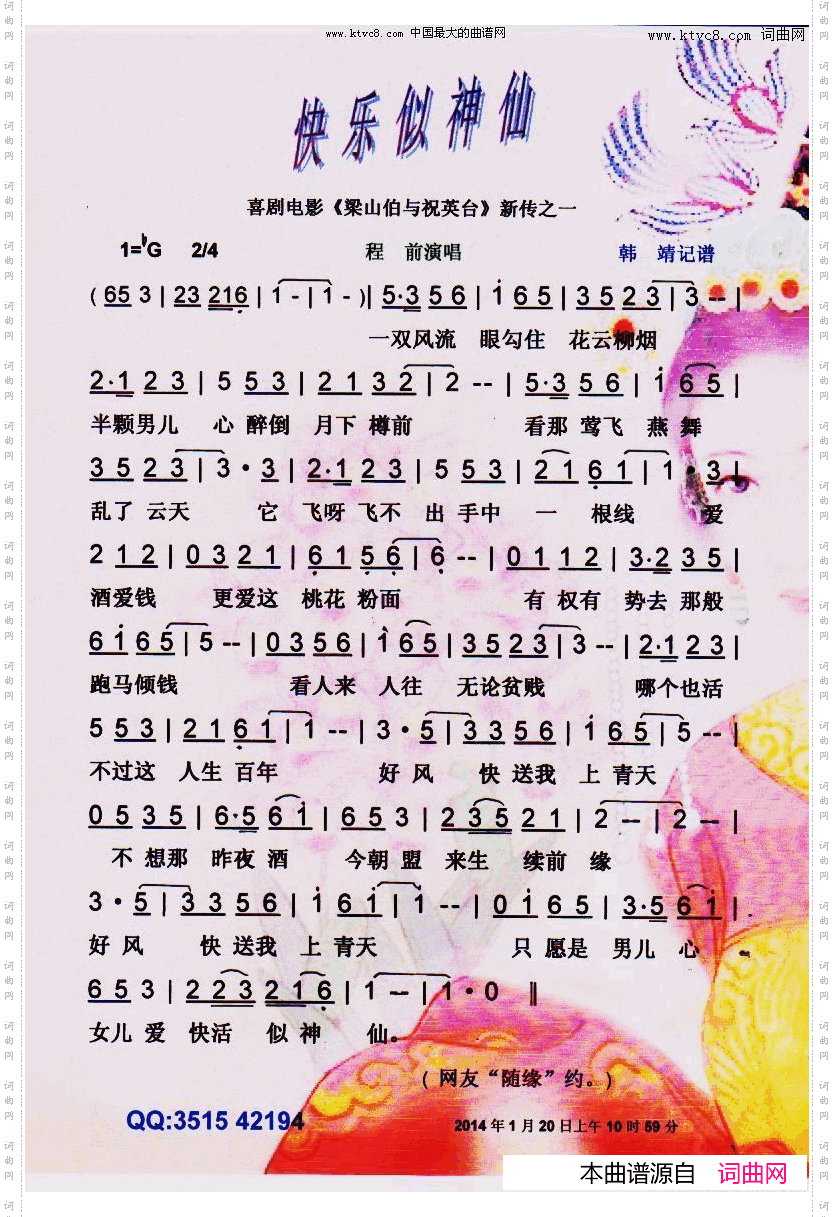 www.ktvc8.com 中国最大的曲谱网
www.ktvc8.com 词曲网
快乐似神仙
喜剧电影《梁山伯与祝英台》新传之一
1=♭G 2/4 程 前演唱 韩 靖记谱
( 65 3 | 23 216 | 1 - | 1 - )| 5·3 5 6 | 1 6 5 | 3 5 2 3 | 3 -- |
一双风流 眼勾住 花云柳烟
2·1 2 3 | 5 5 3 | 2 1 3 2 | 2 -- | 5·3 5 6 | 1 6 5 |
半颗男儿 心 醉倒 月下 樽前 看那 莺飞 燕 舞
3 5 2 3 | 3 · 3 | 2·1 2 3 | 5 5 3 | 2 1 6 1 | 1 · 3 |
乱了 云天 它 飞呀 飞不 出 手中 一 根线 爱
2 1 2 | 0 3 2 1 | 6 1 5 6 | 6 -- | 0 1 1 2 | 3·2 3 5 |
酒爱钱 更爱这 桃花 粉面 有 权有 势去 那般
6 1 6 5 | 5 -- | 0 3 5 6 | 1 6 5 | 3 5 2 3 | 3 -- | 2·1 2 3 |
跑马倾钱 看人来 人往 无论贫贱 哪个也活
5 5 3 | 2 1 6 1 | 1 -- | 3 · 5 | 3 3 5 6 | 1 6 5 | 5 -- |
不过这 人生 百年 好 风 快 送我 上 青天
0 5 3 5 | 6·5 6 1 | 6 5 3 | 2 3 5 2 1 | 2 -- | 2 -- |
不 想那 昨夜 酒 今朝 盟 来生 续前 缘
3 · 5 | 3 3 5 6 | 1 6 1 | 1 -- | 0 1 6 5 | 3·5 6 1 |
好 风 快 送我 上 青天 只 愿是 男儿 心
6 5 3 | 2 2 3 2 1 6 | 1 -- | 1 · 0 ‖
女儿 爱 快活 似 神 仙。
( 网友“随缘”约。)
QQ:3515 42194
2014 年 1 月 20 日上午 10 时 59 分
本曲谱源自 词曲网